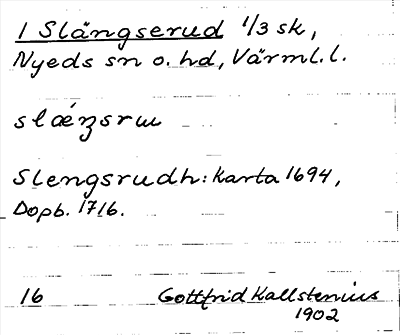 1 Slängserud 1/3 sk,
Nyeds sn o. hd, Värml. l.
slǽŋsrɯ
Slengsrudh: Karta 1694,
Dopb. 1716.
16 Gottfrid Kallstenius
1902